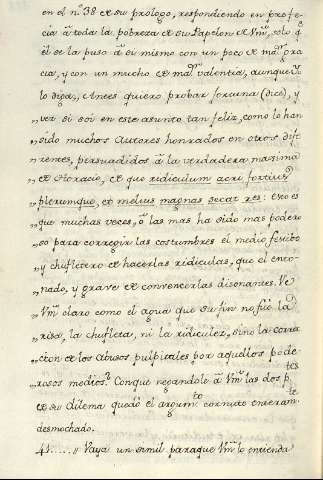 en el n.º 38 de su prólogo, respondiendo en profe-
cia á toda la pobreza de su Papelon de Vm, solo q
él se la puso á si mismo con un poco de mas gra-
cia, y con un mucho de mas valentia, aunque
lo diga, "Ansi quiero probar fortuna (dice), y
"ver si soi en este asunto tan feliz, como lo han
"sido muchos Autores honrados en otros dife
"rentes, persuadidos á la verdadera maxima
"de Horacio, de que ridiculum acri fortius
"plerumque, et melius magnas secat res: esto es
"que muchas veces, ó las mas ha sido mas podero
"so para corregir las costumbres el medio festibo
"y chufletero de hacerlas ridiculas, que el ento-
"nado, y grave de convencerlas disonantes. Ve
Vm claro como el agua que su fin no fué la
risa, la chufleta, ni la ridiculez, sino la corre
ccion de los Abusos pulpitales por aquellos pode-
rosos medios? Conque negandole á Vm las dos ptes
de su dilema quedó el argumto cornuto enteramte
desmochado.
41..... " Vaya un simil paraque Vm lo entienda